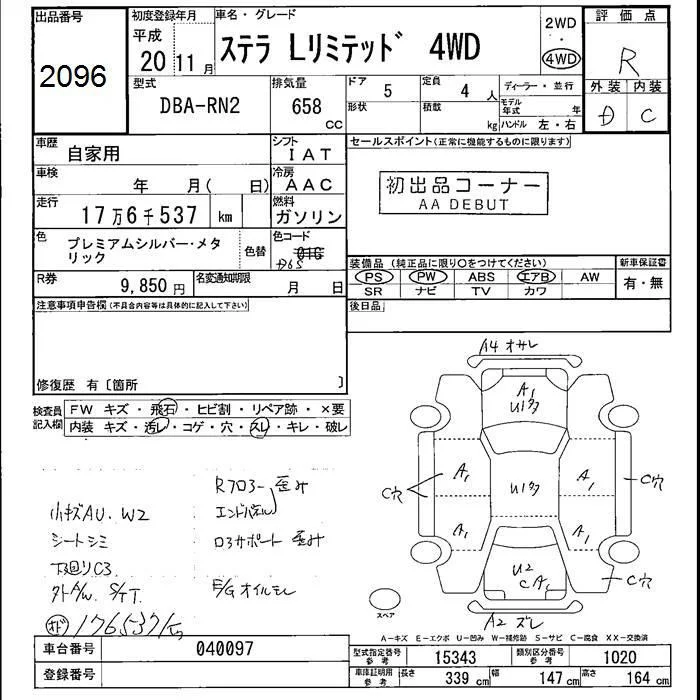 出品番号
2096
初度登録年月
平成
20 11月
車名・グレード
ステラ Lリミテッド 4WD
2WD
・
4WD
評価点
R
外装 内装
D C
型式
DBA-RN2
排気量
658
CC
ドア
5
定員
4 人
形状
積載
kg
ディーラー・並行
モデル年式 年
ハンドル 左・右
車歴
自家用
シフト
IAT
車検
年 月( 日)
冷房
AAC
走行
17万6千537 km
燃料
ガソリン
色
プレミアムシルバー・メタリック
色替
色コード
D6S
R券
9,850円
名変通知期限
月 日
セールスポイント(正常に機能するものに限ります)
初出品コーナー
AA DEBUT
装備品(純正品に限り○をつけてください)
PS PW ABS エアB AW
SR ナビ TV カワ
新車保証書
有・無
後日品
注意事項申告欄(不具合内容等は具体的に記入して下さい)
修復歴 有〔箇所 〕
検査員記入欄
FW キズ・飛石・ヒビ割・リペア跡・×要
内装 キズ・汚レ・コゲ・穴・スレ・キレ・破レ
小キズAU、W2
シートシミ
下廻りC3
外A/W、S/T T.
オド 176537K
Rフロアー歪み
エンドパネル
ロアサポート 歪み
E/Gオイルモレ
A4 オサレ
A1
U1多
C穴
A1
A1
U1多
A1
A1
C穴
U2
CA1
C穴
A2 ズレ
スペア
A−キズ E−エクボ U−凹み W−補修跡 S−サビ C−腐食 XX−交換済
車台番号
040097
登録番号
型式指定番号
参考
15343
類別区分番号
参考
1020
車庫証明用
参考
長さ 339 cm
幅 147 cm
高さ 164 cm